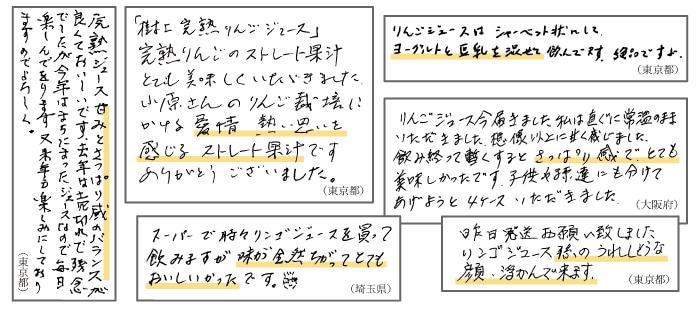 完熟ジュース甘みとさっぱり感のバランスが
良くておいし〜いです。去年は売切れで残念
でしたが今年はまちにまったジュースなので毎日
楽しんでをります 又来年も楽しみにしており
ますのでよろしく。
（東京都）
「樹上完熟りんごジュース」
完熟りんごのストレート果汁
とても美味しくいただきました
小原さんのりんご栽培に
かける愛情 熱い思いを
感じる ストレート果汁です
ありがとう ございました。
（東京都）
りんごジュースは シャーベット状にして
ヨーグルトと豆乳を混ぜて飲んでます. 絶品ですよ.
（東京都）
りんごジュース今届きました.私は直ぐに常温のまま
いただきました.想像以上に甘く感じました.
飲み終って暫くすると さっぱり感で、とても
美味しかったです.子供や孫達にも分けて
あげようと4ケースいただきました.
（大阪府）
スーパーで時々リンゴジュースを買って
飲みますが 味が全然ちがってとても
おいしいかったです。
（埼玉県）
昨日発送お願い致しました
リンゴジュース孫のうれしそうな
顔、浮かんで来ます.
（東京都）